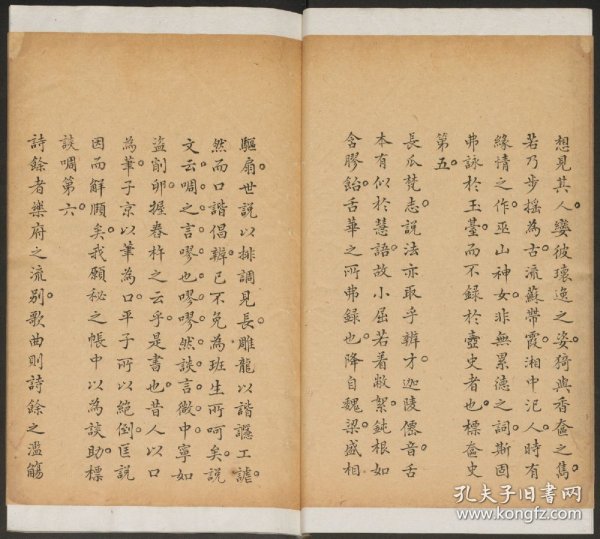 想見其人孌彼瓌逸之姿猗與香奩之雋
若乃步搖為古流蘇帶霞湘中汜人時有
緣情之作巫山神女非無累德之詞斯固
弗詠於玉臺而不錄於壼史者也標奩史
第五
長瓜梵志說法亦取乎辨才迦陵僊音舌
本有似於慧語故小屈若着敝絮鈍根如
含膠飴舌華之所弗錄也降自魏梁盛相
驅扇世說以排調見長雕龍以諧讔工謔
然而口諧倡辯已不免為班生所呵矣說
文云啁之言嘐也嘐嘐然談言微中寧如
盜削卵握舂杵之云乎是書也昔人以口
為筆子京以筆為口平子所以絕倒匡說
因而解頤矣我願秘之帳中以為談助標
談啁第六
詩餘者樂府之流別歌曲則詩餘之濫觴
孔夫子旧书网
www.kongfz.com